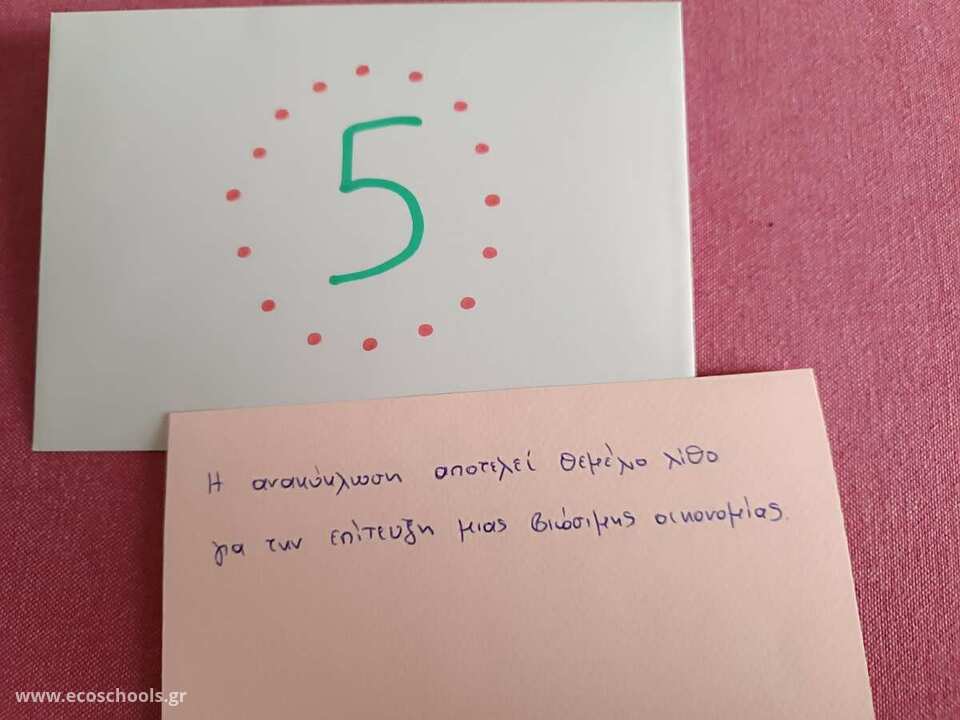 5
Η ανακύκλωση αποτελεί θεμέλιο λίθο
για την επίτευξη μιας βιώσιμης οικονομίας.
www.ecoschools.gr